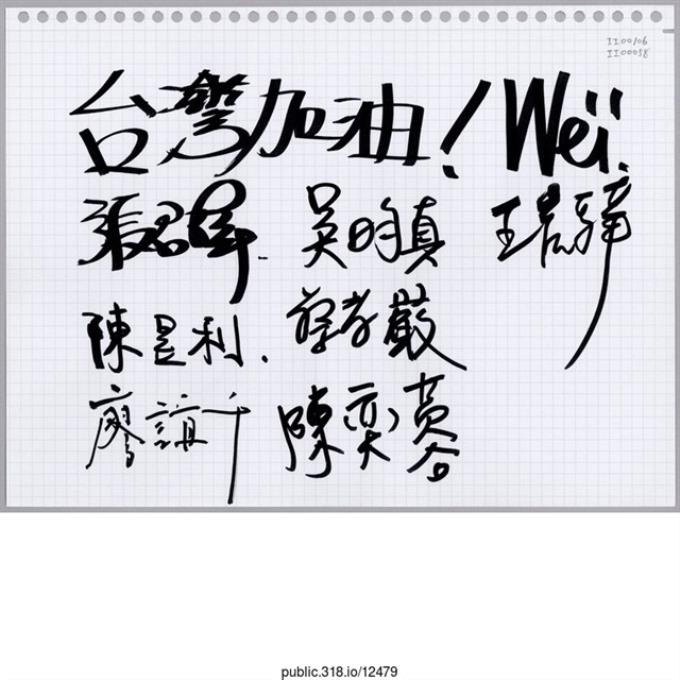 1100106
1100058
台灣加油! Wei
張君 吳明真 王君
陳昱利. 蔡孝嚴
廖誼千 陳奕蓉
public.318.io/12479